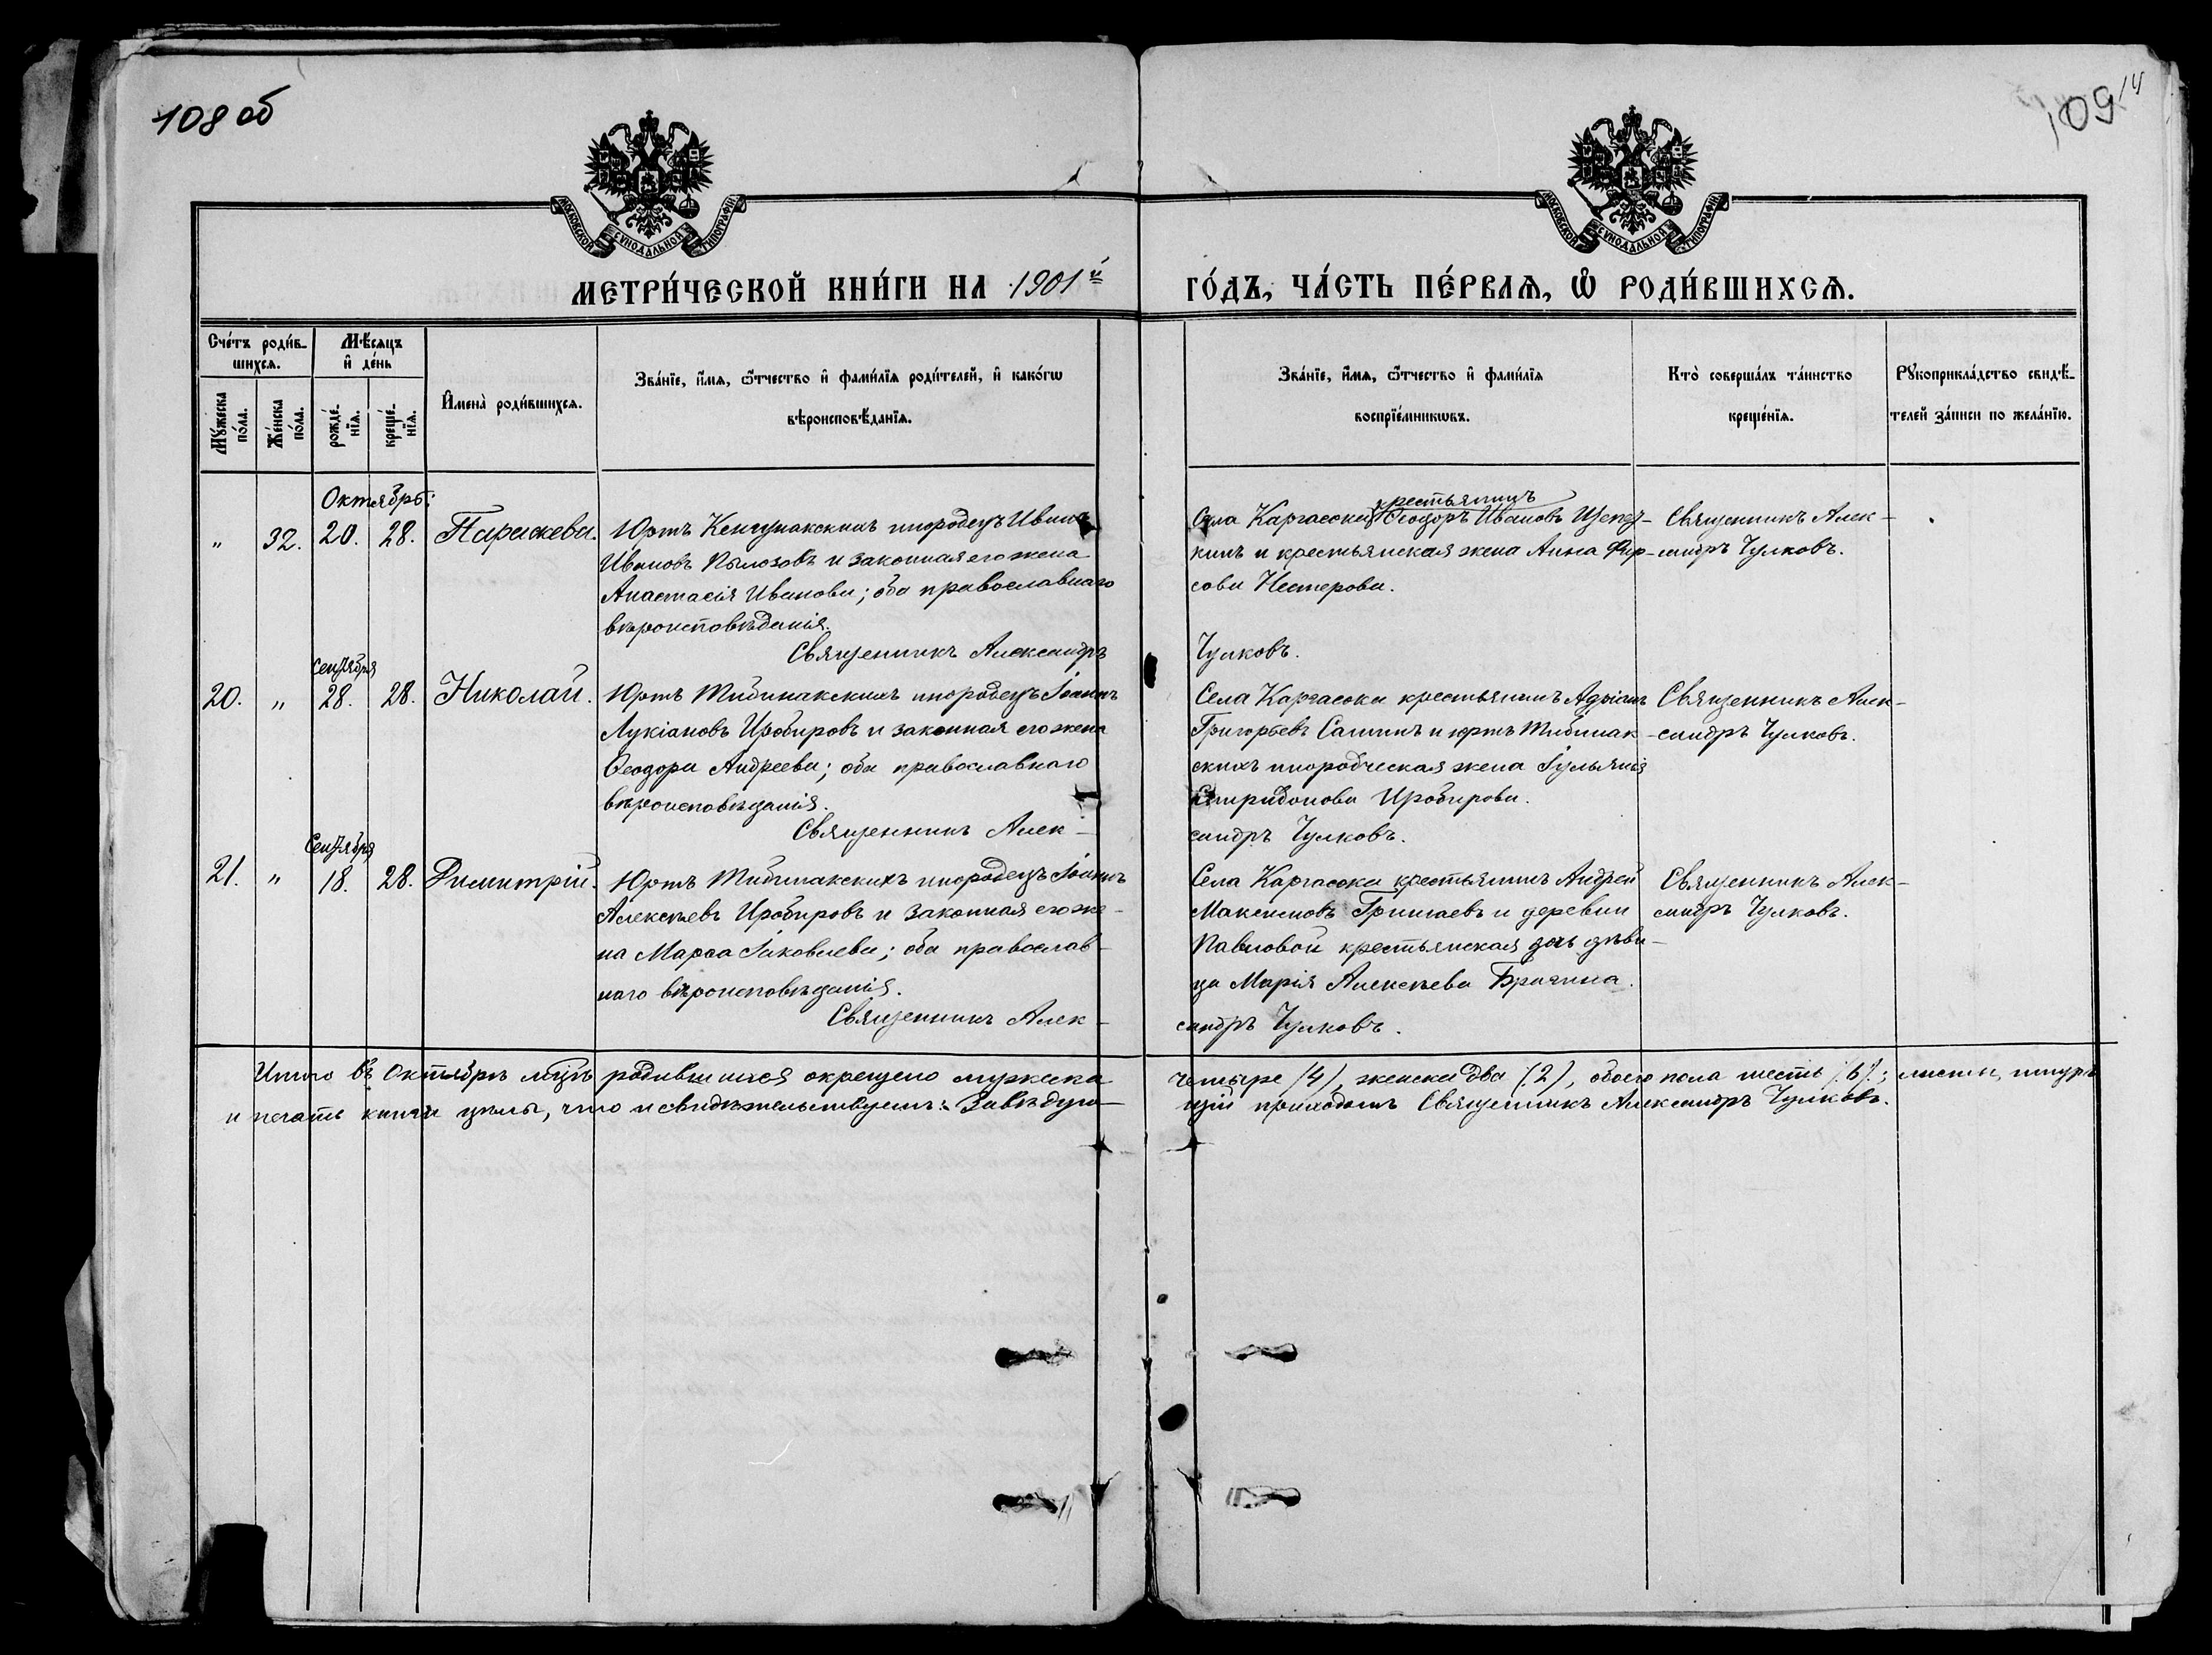 108 об
109
14
МОСКОВСКОЙ СѴНОДАЛЬНОЙ ТИПОГРАФІИ
МОСКОВСКОЙ СѴНОДАЛЬНОЙ ТИПОГРАФІИ
МЕТРИ́ЧЕСКОЙ КНИ́ГИ НА 1901й
ГО́ДЪ, ЧА́СТЬ ПЕ́РВАѦ, Ѡ҆ РОДИ́ВШИХСѦ.
Сче́тъ роди́в-
шихсѧ.
Мѣ́сѧцъ
и҆ де́нь
Мꙋ́жеска
по́ла.
Же́нска
по́ла.
рожде́-
нїѧ.
креще́-
нїѧ.
И҆мена̀ роди́вшихсѧ.
Зва́нїе, и҆́мѧ, ѻ҆́тчество и҆ фами́лїѧ роди́телей, и҆ како́гѡ
вѣроисповѣ́данїѧ.
Зва́нїе, и҆́мѧ, ѻ҆́тчество и҆ фами́лїѧ
воспрїе́мникѡвъ.
Кто̀ соверша́лъ та́инство
креще́нїѧ.
Рꙋкоприкла́дство свидѣ́-
телей за́писи по жела́нїю.
Октябрь:
„ 32. 20. 28. Параскева.
Юртъ Кенгунакскихъ инородецъ Иванъ
Ивановъ Пылосовъ и законная его жена
Анастасія Иванова; оба православнаго
вѣроисповѣданія.
Священникъ Александръ
крестьянинъ
Села Каргасока Ѳеодоръ Ивановъ Щепет-
кинъ и крестьянская жена Анна Фир-
сова Нестерова.
Чулковъ.
Священникъ Алек-
сандръ Чулковъ.
Сентября
20. „ 28. 28. Николай.
Юртъ Тибинакскихъ инородецъ Іоаннъ
Лукіановъ Ироbировъ и законная его жена
Ѳеодора Андреева; оба православнаго
вѣроисповѣданія.
Священникъ Алек-
Села Каргасока крестьянинъ Адріанъ
Григорьевъ Саминъ и юртъ Тибинак-
скихъ инородческая жена Іульянія
Спиридонова Иробирова.
сандръ Чулковъ.
Священникъ Алек-
сандръ Чулковъ.
Сентября
21. „ 18. 28. Димитрій.
Юртъ Тибинакскихъ инородецъ Іоаннъ
Алексѣевъ Иробировъ и законная его же-
на Марѳа Іаковлева; оба православ-
наго вѣроисповѣданія.
Священникъ Алек-
Села Каргасока крестьянинъ Андрей
Максимовъ Гришаевъ и деревни
Павловой крестьянская дочь дѣви-
ца Марія Алексѣева Брагина.
сандръ Чулковъ.
Священникъ Алек-
сандръ Чулковъ.
Итого въ Октябрѣ мѣцѣ родившихся окрещено мужска четыре (4), женска два (2), обоего пола шесть (6); листы, шнуръ
и печать книги цѣлы, что и свидѣтельствуемъ: Завѣдую-щій приходомъ Священникъ Александръ Чулковъ.